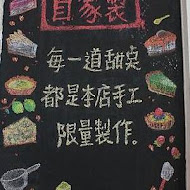 自家製
每一道甜桌
都是本店手工
限量製作。